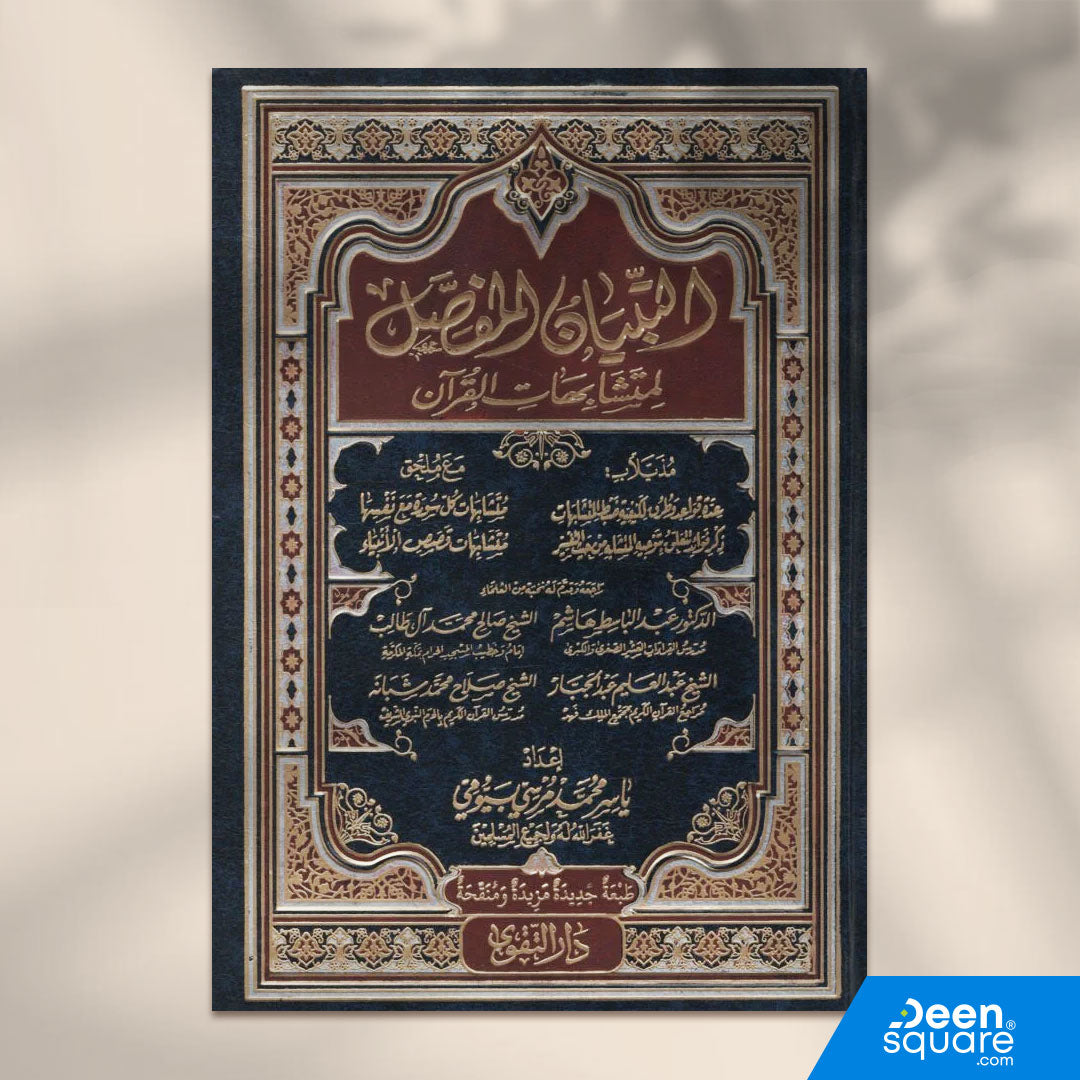 التبيان المفصل
لمتشابهات القرآن
مذيلاً ب: مع ملحق
عدة قواعد وطرق لكيفية ضبط المتشابهات متشابهات كل سورة مع نفسها
ذكر توجيه المتشابه من حيث التفسير متشابهات قصص الأنبياء
راجعه وقدم له نخبة من العلماء
الدكتور عبد الباسط هاشم الشيخ صالح محمد آل طالب
مدرس القراءات العشر الصغرى والكبرى إمام وخطيب المسجد الحرام بمكة المكرمة
الشيخ عبد العليم عبد الجبار الشيخ صلاح محمد شبانة
مراجع القرآن الكريم بمجمع الملك فهد مدرس القرآن الكريم بالحرم النبوي الشريف
إعداد
ياسر محمد مرسي بيومي
غفر الله له ولجميع المسلمين
طبعة جديدة مزيدة ومنقحة
دار التقوى
Deen®
square
.com